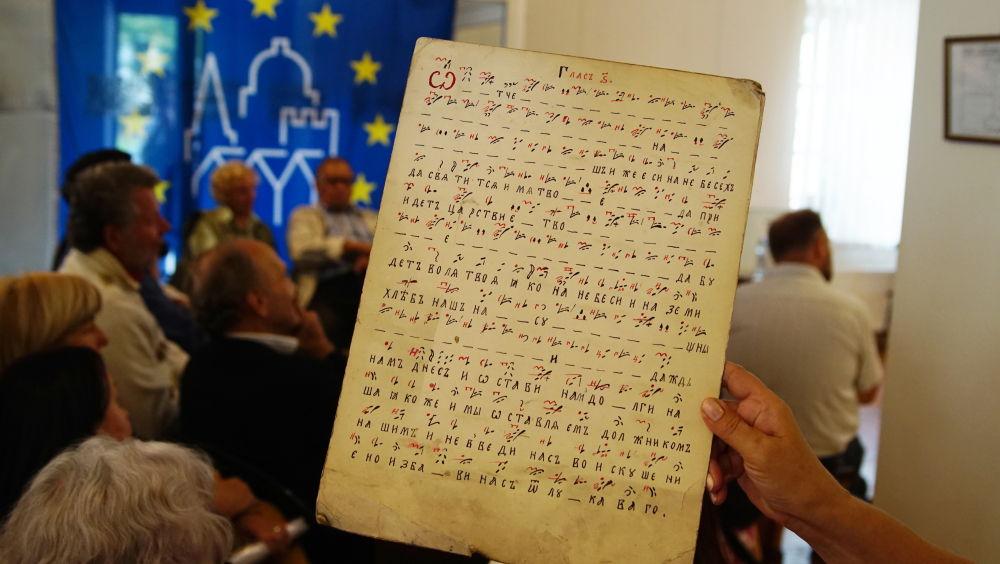 Гласъ ѕ҃.
Ѡ — тче —
на —
шъ и же е си на не бесехъ
да сва ти тса и ма тво — е — да при
и детъ ца рствие — тво —
е — да бу
детъ вола твоа ꙗ ко на небеси и на земи
хлѣбъ нашъ на — су — щны
и — даждь
намъ днесъ и ѡстави нам до — лги на
ша ꙗкоже и мы ѡставла емъ дол жникомъ
на шимъ и не введи насъ во и ску ше ни
е но изба — ви насъ ѿ лу — ка ва го.